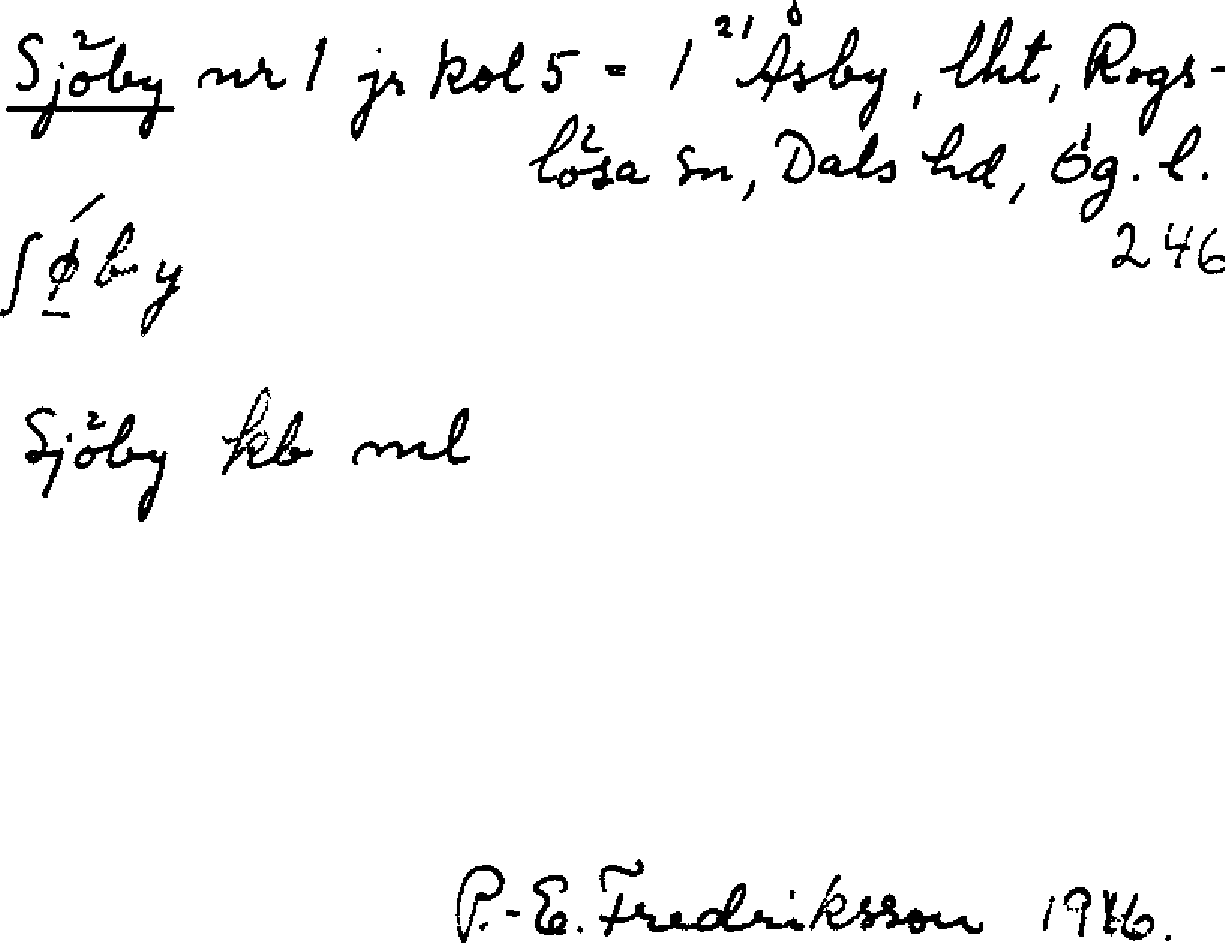 Sjöby nr 1 jr kol 5 = 1²¹ Åsby, lht, Rogs-
lösa sn, Dals hd, Ög. l.
246
ʃǿ̠by
Sjöby kb ml
P.-E. Fredriksson 1946.